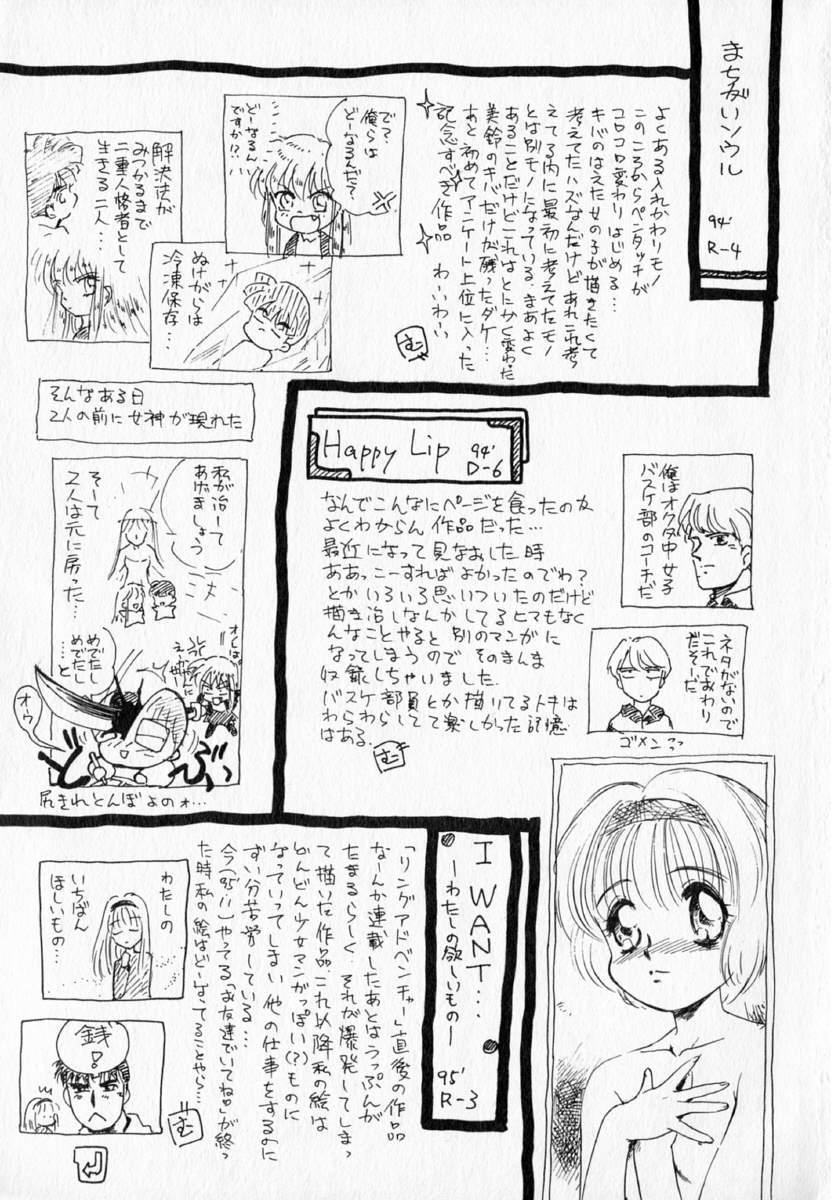 まちがいソウル
94'
R-4
よくある入れかわりモノ
このころからペンタッチが
コロコロ変わりはじめる…
キバのはえた女の子が描きたくて
考えてたハズなんだけどあれこれ考
えてる内に最初に考えてたモノ
とは別モノになっている、まあよく
あることだけどこれはとにかく変わった
美鈴のキバだけが残ったダケ…
あと初めてアンケート上位に入った
記念すべき作品 わーいわーい
む
で?
俺らは
どーなるんだ?
どーなるん
ですか!?
ぬけがらは
冷凍保存…
解決法が
みつかるまで
二重人格者として
生きる二人…
そんなある日
2人の前に女神が現れた
私が治ーて
あげましょう
そーて
2人は元に戻った…
めでたし
めでたし
…と
オウ
尻きれとんぼよのォ…
Happy Lip
94'
D-6
なんでこんなにページを食ったのか
よくわからん作品だった…
最近になって見なおした時
ああっこーすればよかったのでわ?
とかいろいろ思いついたのだけど
描き治しなんかしてるヒマもなく
んなことやると別のマンガに
なってしまうので そのまんま
収録しちゃいました.
バスケ部員とか描いてるトキは
わらわらしてて楽しかった記憶
はある.
む
俺はオクタ中女子
バスケ部のコーチだ
ネタがないので
これでおわり
だそーだ
ゴメンネっ
I WANT…
―わたしの欲しいもの―
95'
R-3
「リングアドベンチャー」直後の作品
なーんか連載したあとはうっぷんが
たまるらしく それが爆発してしまっ
て描いた作品.これ以降私の絵は
どんどん少女マンガっぽい(?)ものに
なっていってしまい他の仕事をするのに
ずい分苦労している…
今(95'11)やってる「お友達でいてね」が終っ
た時私の絵はどーなってることやら…
む
わたしの
いちばん
ほしいもの…
銭!